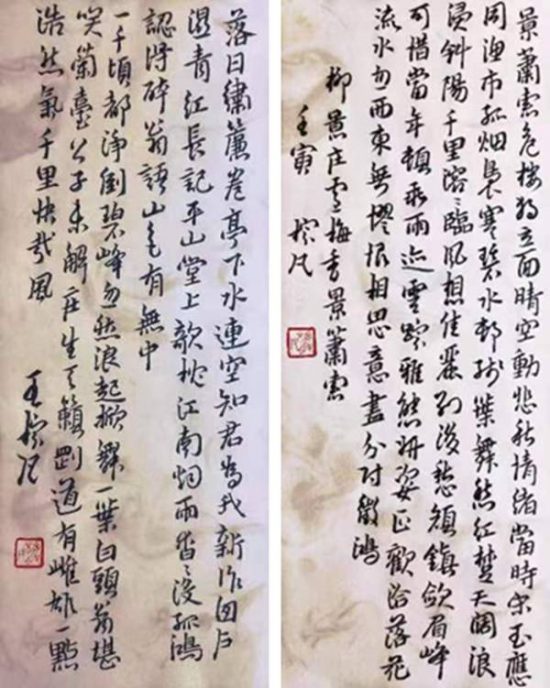 景蕭索危樓獨立面晴空動悲秋情緒當時宋玉應
同漁市孤烟裊寒碧水邨殘葉舞愁红楚天闊浪
浸斜陽千里溶々臨風想佳麗別後愁顏鎮斂眉峰
可惜當年頓乖雨迹雲踪雅態妍姿正歡洽落花
流水忽西東無憀恨相思意盡分付徵鴻
柳景庄雪梅香景蕭索
壬寅
落日繡簾卷亭下水連空知君為我新作囱户
濕青红長記平山堂上欹枕江南烟雨沓々没孤鴻
認得醉翁語山色有無中
一千頃都淨倒碧峰忽然浪起掀舞一葉白頭翁堪
笑蘭臺公子未解庄生天籟剛道有雌雄一點
浩然氣千里快哉風
王